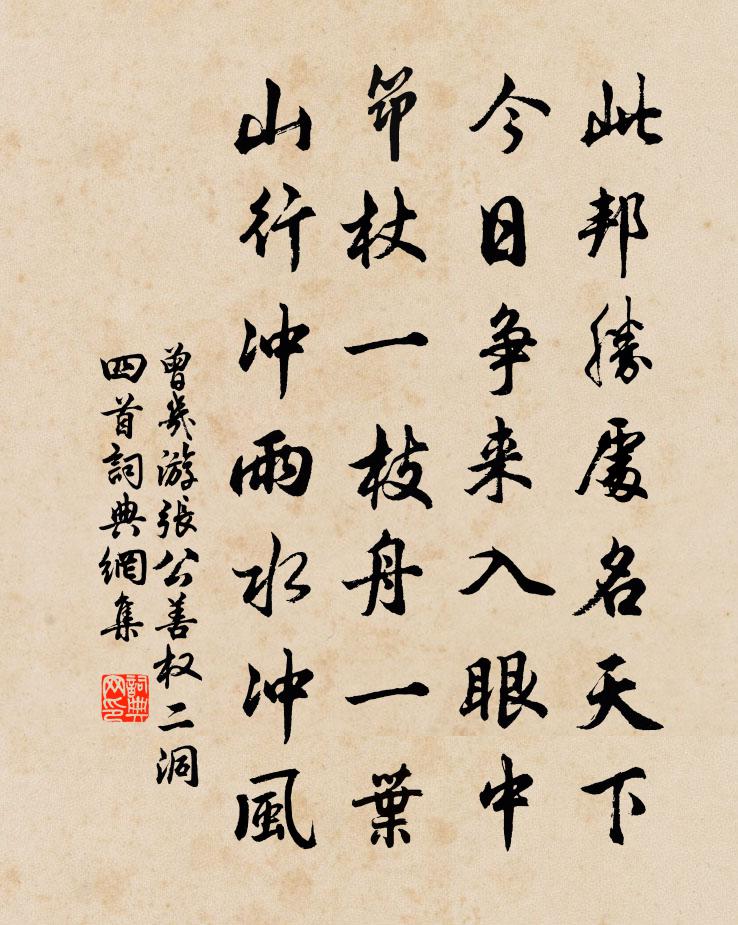 此邦勝處名天下
今日争来入眼中
笻杖一枝舟一葉
山行冲雨水冲風
曾幾游張公善权二洞
四首詞典網集
詞典网印